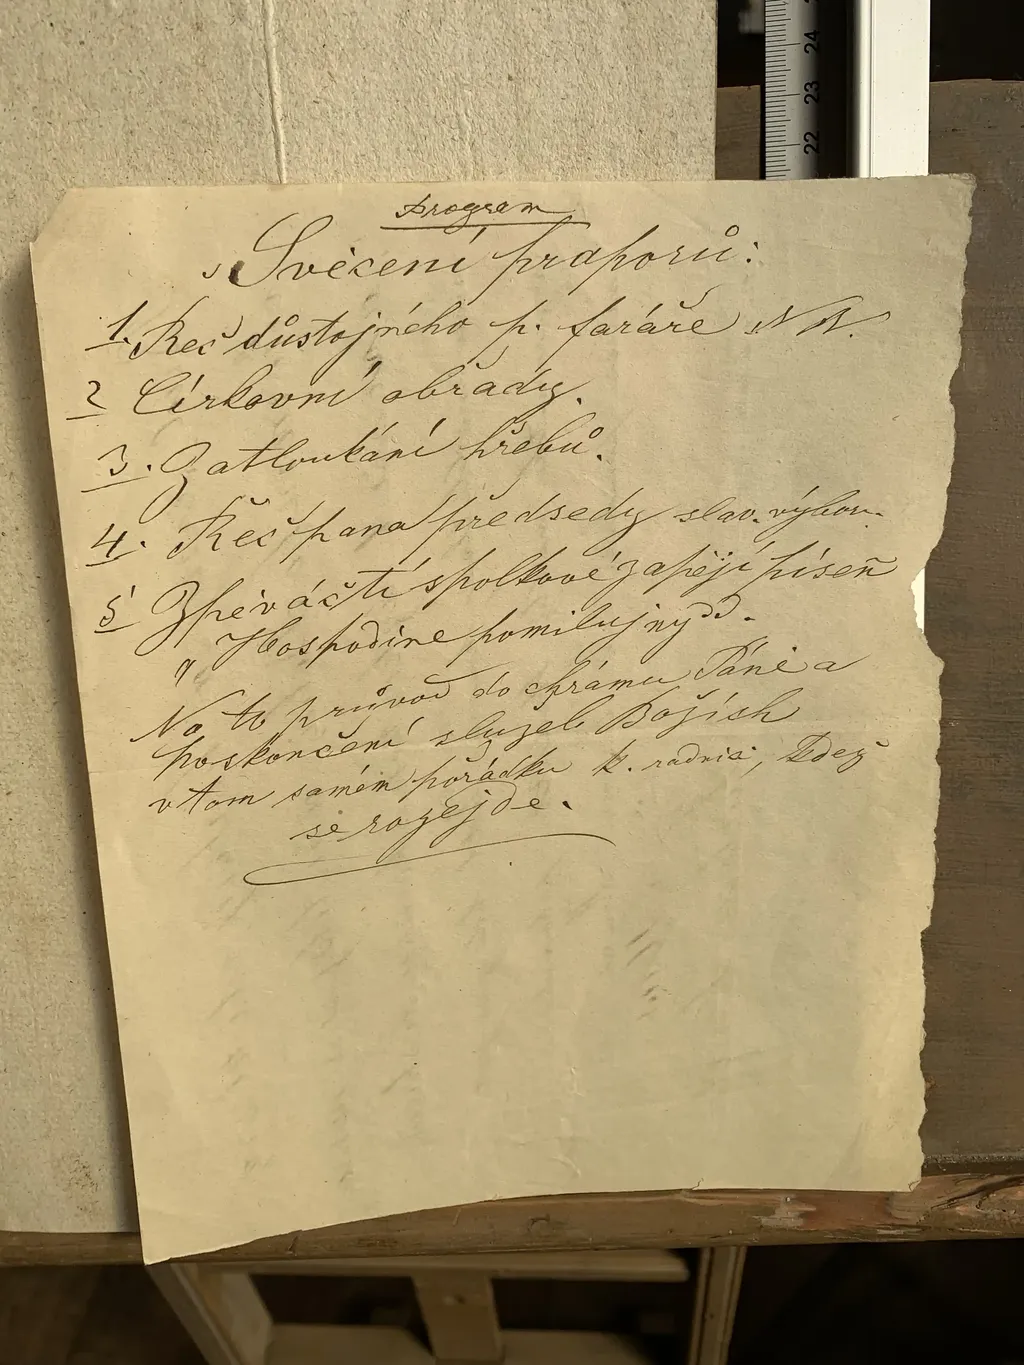 Program
Svěcení praporů:
1. Řeč důstojného p. faráře N N.
2 Církevní obřady.
3. Zatloukání hřebů.
4. Řeč pana předsedy slav. výboru.
5 Zpěváčtí spolkové zapějí píseň
„Hospodine pomiluj ny".
Na to průvod do chrámu Páně a
po skončení služeb Božích
v tom samém pořádku k. radnici, kdež
se rozejde.
24
23
22